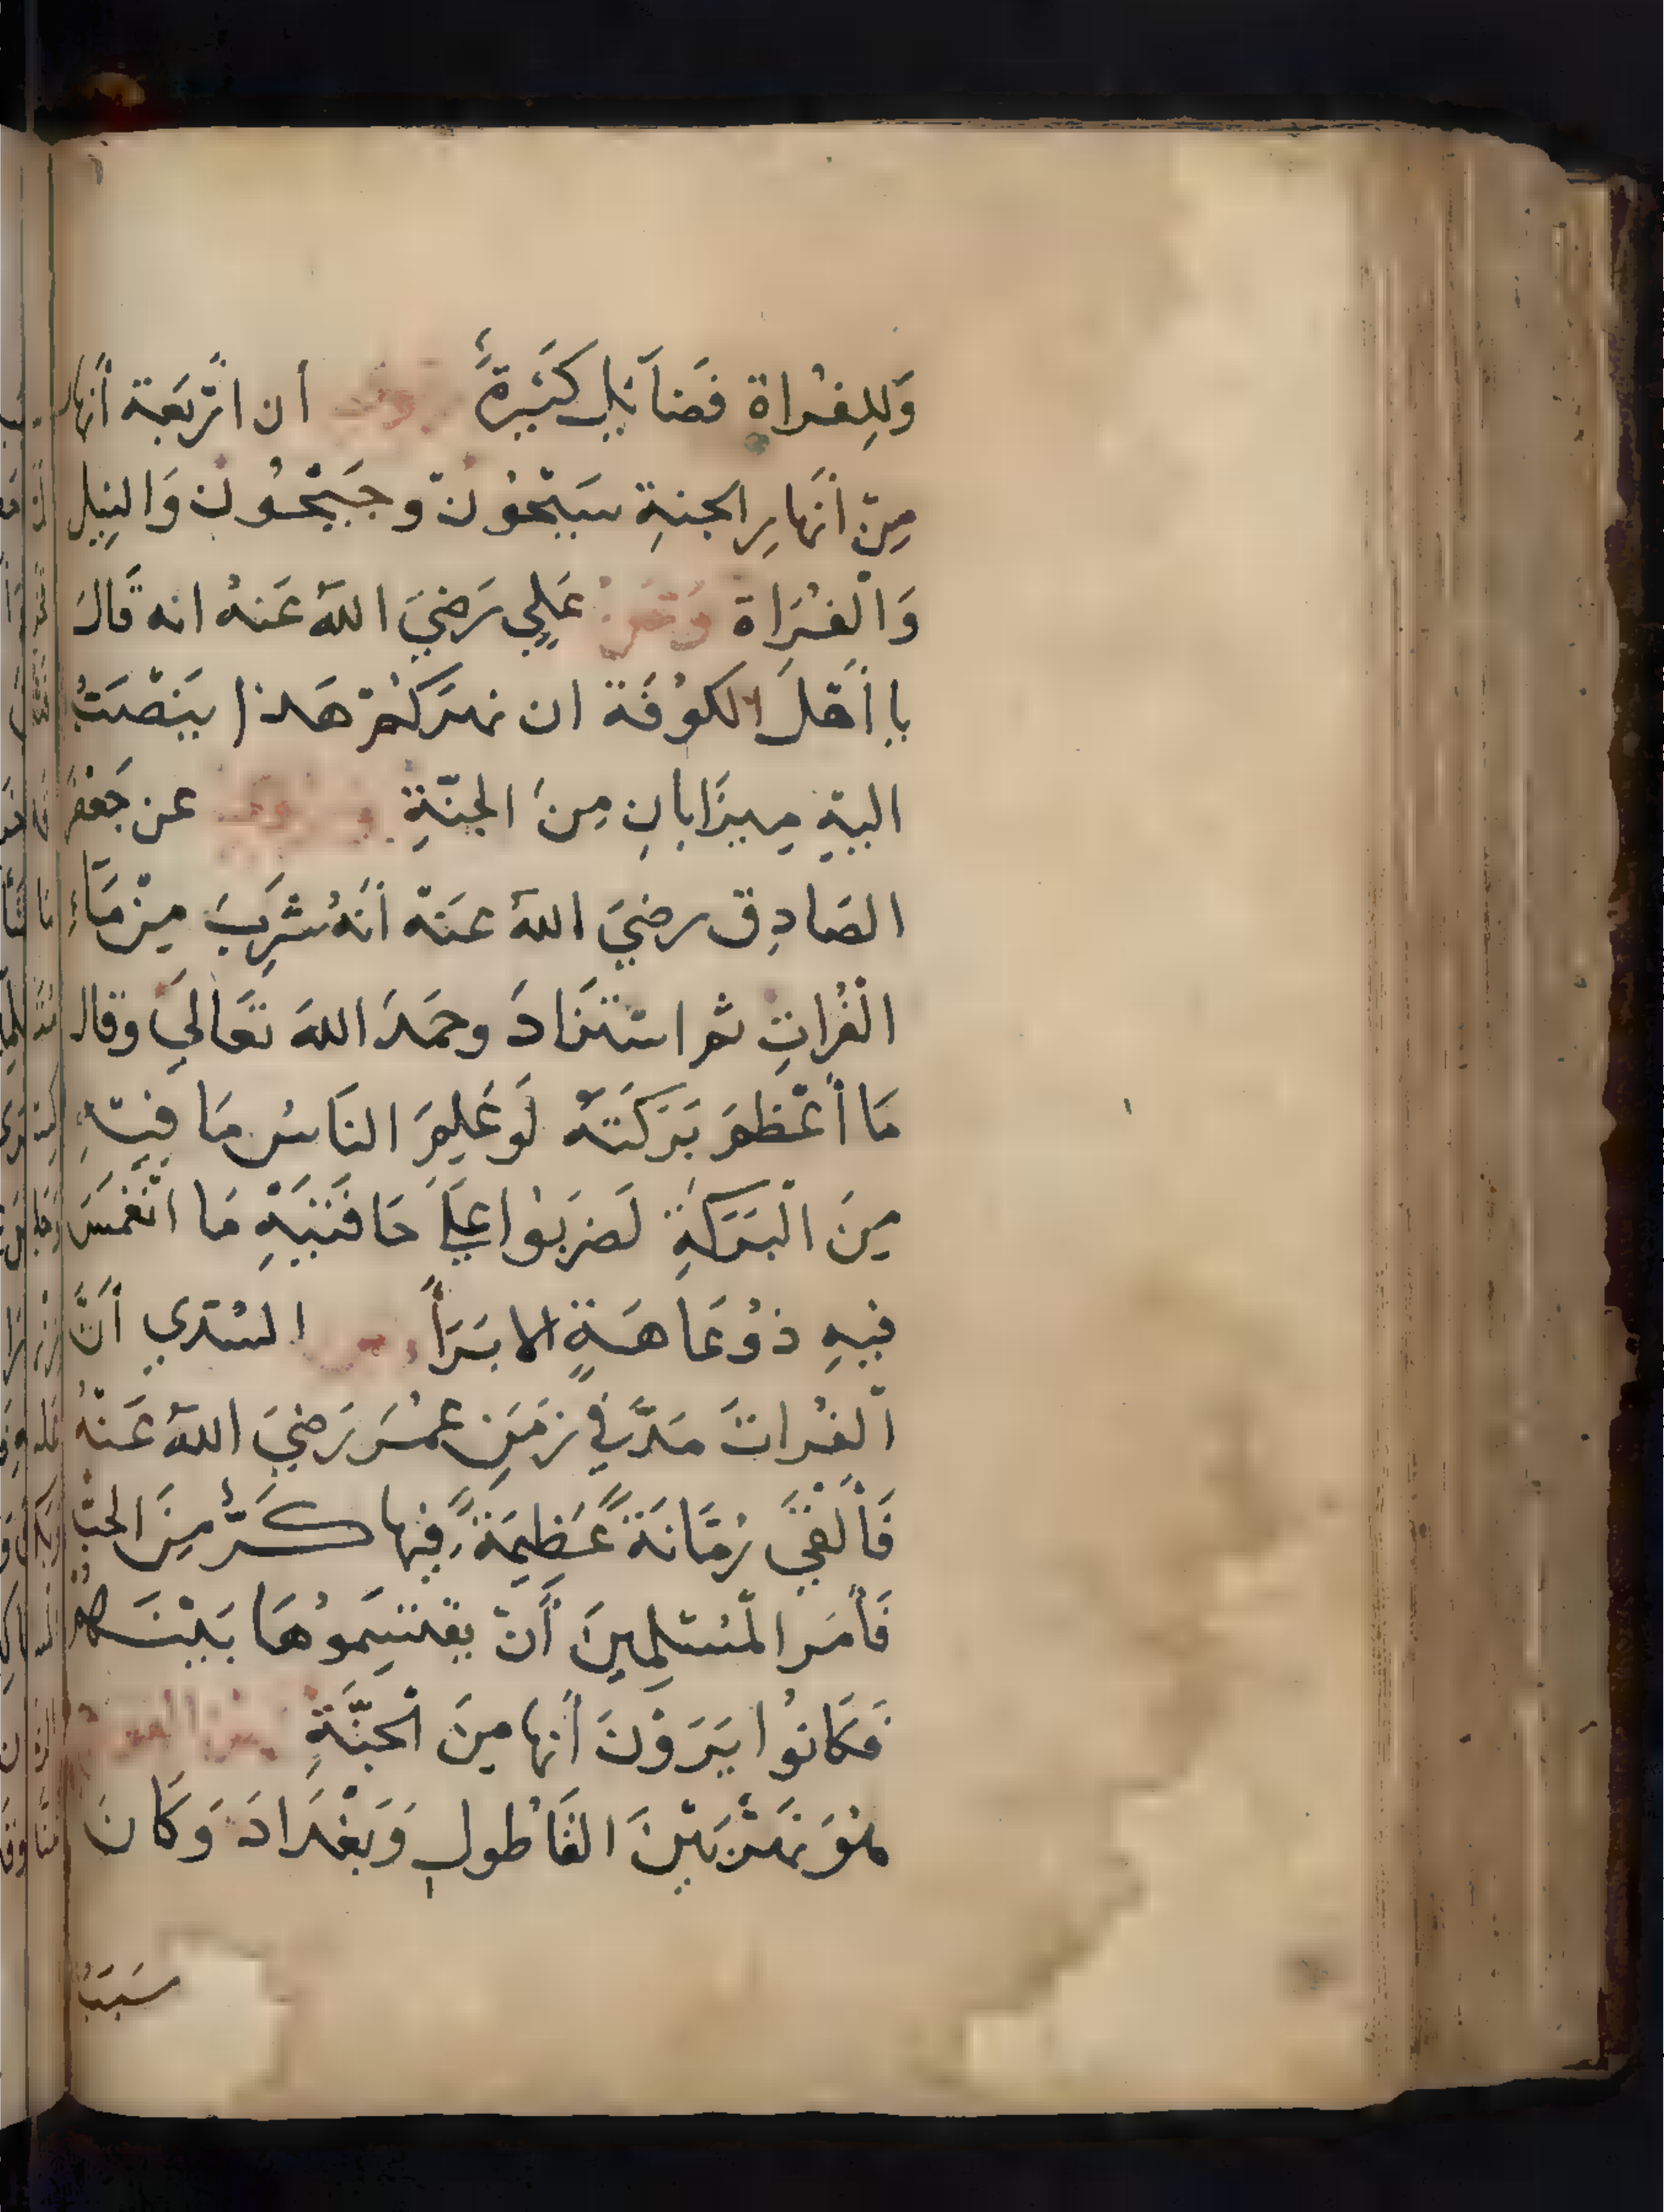 وَلِلفُرَاة فَضَآئِل كَثِيرَةً ان ارْبَعَة أنهار
مِنْ أَنهَارِ الجنةِ سَيْحُون وجَيْحُون وَالنِيل
وَالْفُرَاة وَعَن عَلِيٍ رَضِيَ اللهُ عَنهُ انه قَالَ
يا أَهْلَ الكُوفَة ان نهركُمْ هَذا يَنْصَبُّ
اليهِ مِيزَابانِ مِنَ الجنّةِ عن جَعْفَر
الصَادِق رضيَ اللهُ عنَهْ أنهُ شرِبَ مِنْ مَاءِ
الْفُراتِ ثم استَزَادَ وحمَدَ اللهَ تَعَالَي وقال
مَا أَعْظمَ بَرَكَتَهُ لَو عَلِمَ النَاسُ مَا فيهِ
مِنَ الْبَرَكَةِ لَضرَبُوا عَلَي حَافَتَيْهِ مَا انْغَمَسَ
فيهِ ذوُ عَاهَةٍ الا بَرَأَ السُدّي أنَّ
الْفُراتَ مَدَّ في زمَنِ عُمَرَ رَضيَ اللهُ عَنْهُ
فَأَلْقَي رُمّانَةً عَظِيمَةً فيها كَرٌّ مِنَ الحَبّ
فَأمَر الْمُسْلِمِينَ أَنْ يقْتَسِمُوهَا بَيْنَهُمْ
فكَانُوا يَرَوْنَ أنها مِنَ الْجَنَّةِ
هُوَ نَهْرٌ بَيْنَ القَاطول وَبَغْدَادَ وَكَانَ
سَبَبُ